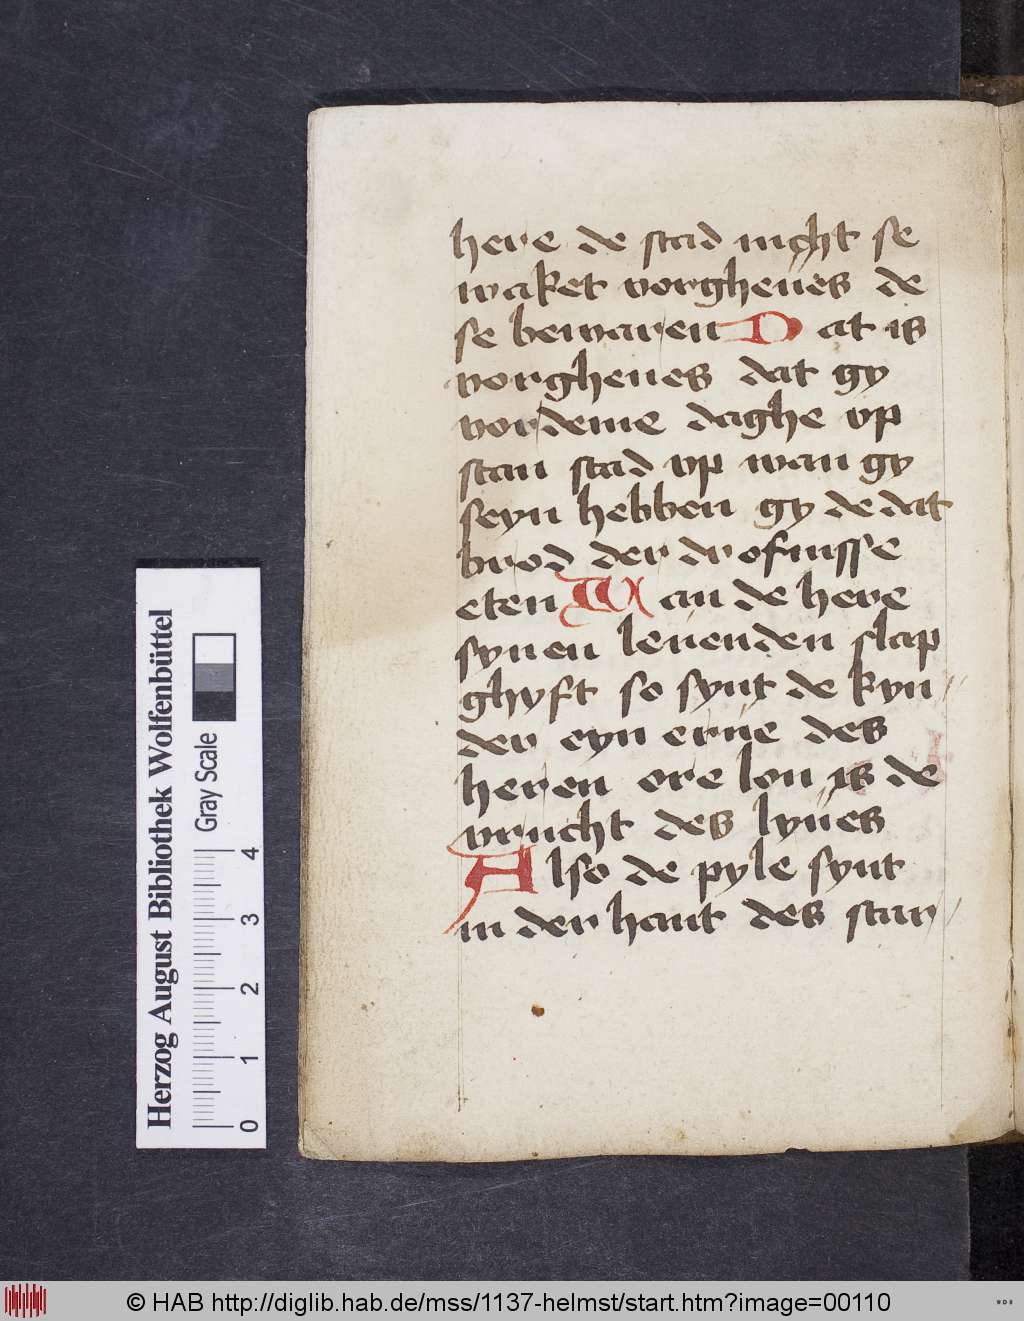 here de stad nicht se
waket vorgheues de
se bewaren Dat is
vorgheues dat gy
vor deme daghe vp
stan stad vp wan gy
seyn hebben gy de dat
brod der drofnisse
eten Wan de here
synen leuenden slap
ghyft so synt de kyn
der eyn erue des
heren ore lon is de
vrucht des lyues
Also de pyle synt
in der hant des star
Herzog August Bibliothek Wolfenbüttel
Gray Scale
0 1 2 3 4
© HAB http://diglib.hab.de/mss/1137-helmst/start.htm?image=00110